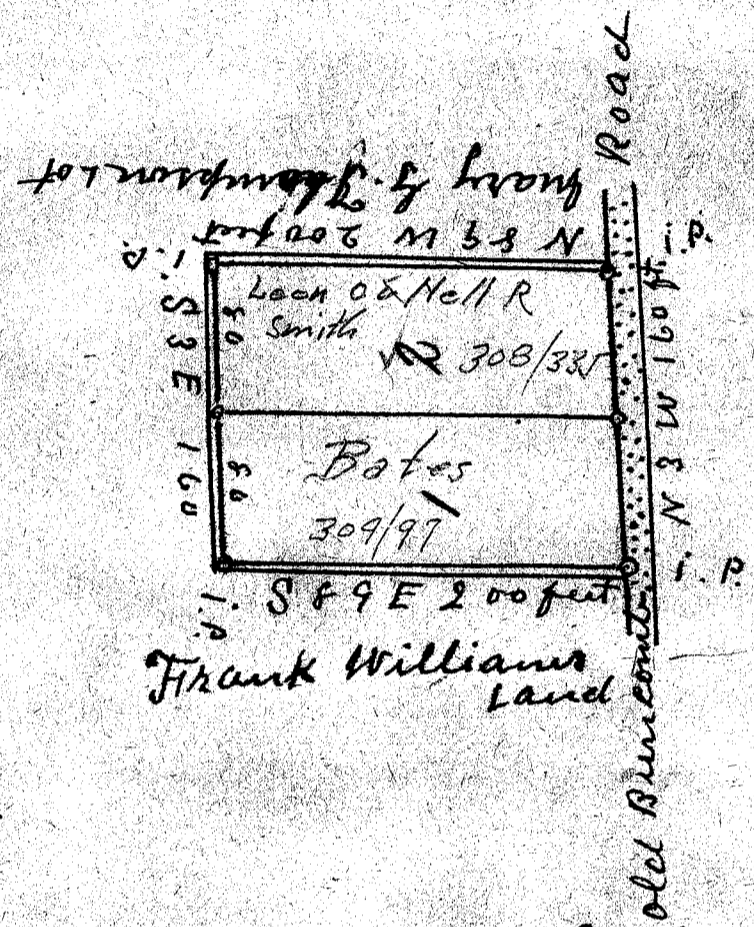 Mary G. Thompson Lot
N 89 W 200 feet
i.p.
i.p.
Leon O & Nell R
Smith
308/335
80
S 3 E 160
Bates
309/97
80
N 3 W 160 ft.
i.p.
i.p.
S 89 E 200 feet
Frank Williams
Land
old Buncombe Road